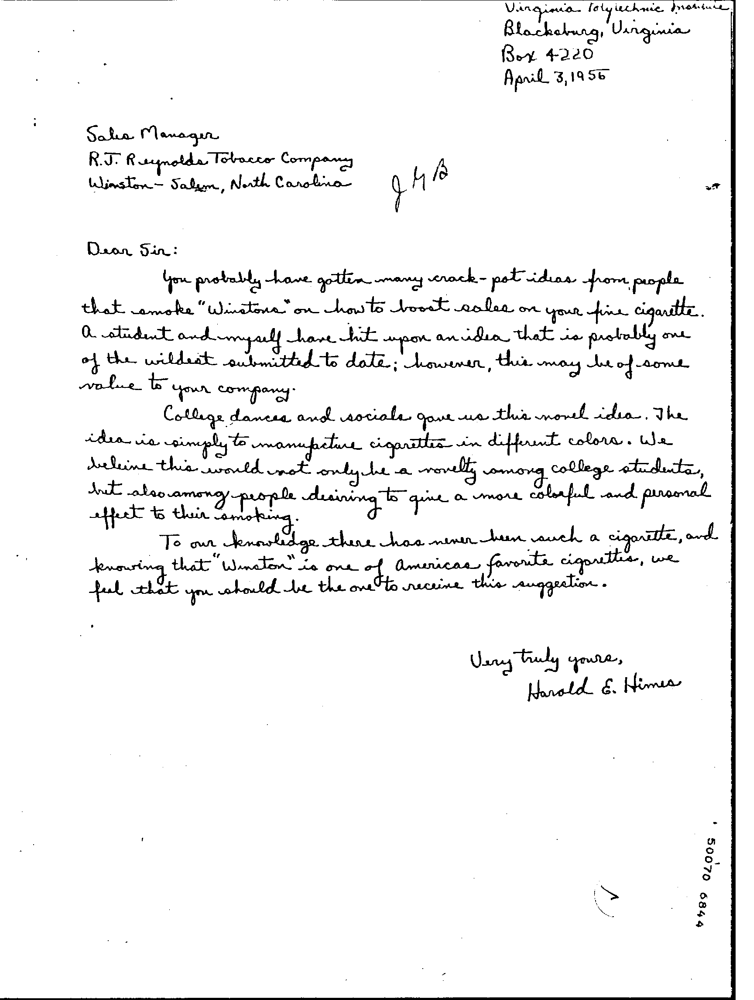 Virginia Polytechnic Institute
Blacksburg, Virginia
Box 4220
April 3, 1956
Sales Manager
R.J. Reynolds Tobacco Company
Winston-Salem, North Carolina
Dear Sir:
You probably have gotten many crack-pot ideas from people
that smoke "Winstons" on how to boost sales on your fine cigarette.
A student and myself have hit upon an idea that is probably one
of the wildest submitted to date; however, this may be of some
value to your company.
College dances and socials gave us this novel idea. The
idea is simply to manufacture cigarettes in different colors. We
believe this would not only be a novelty among college students,
but also among people desiring to give a more colorful and personal
effect to their smoking.
To our knowledge there has never been such a cigarette, and
knowing that "Winston" is one of Americas favorite cigarettes, we
feel that you should be the one to receive this suggestion.
Very truly yours,
Harold E. Himes
50070 6844